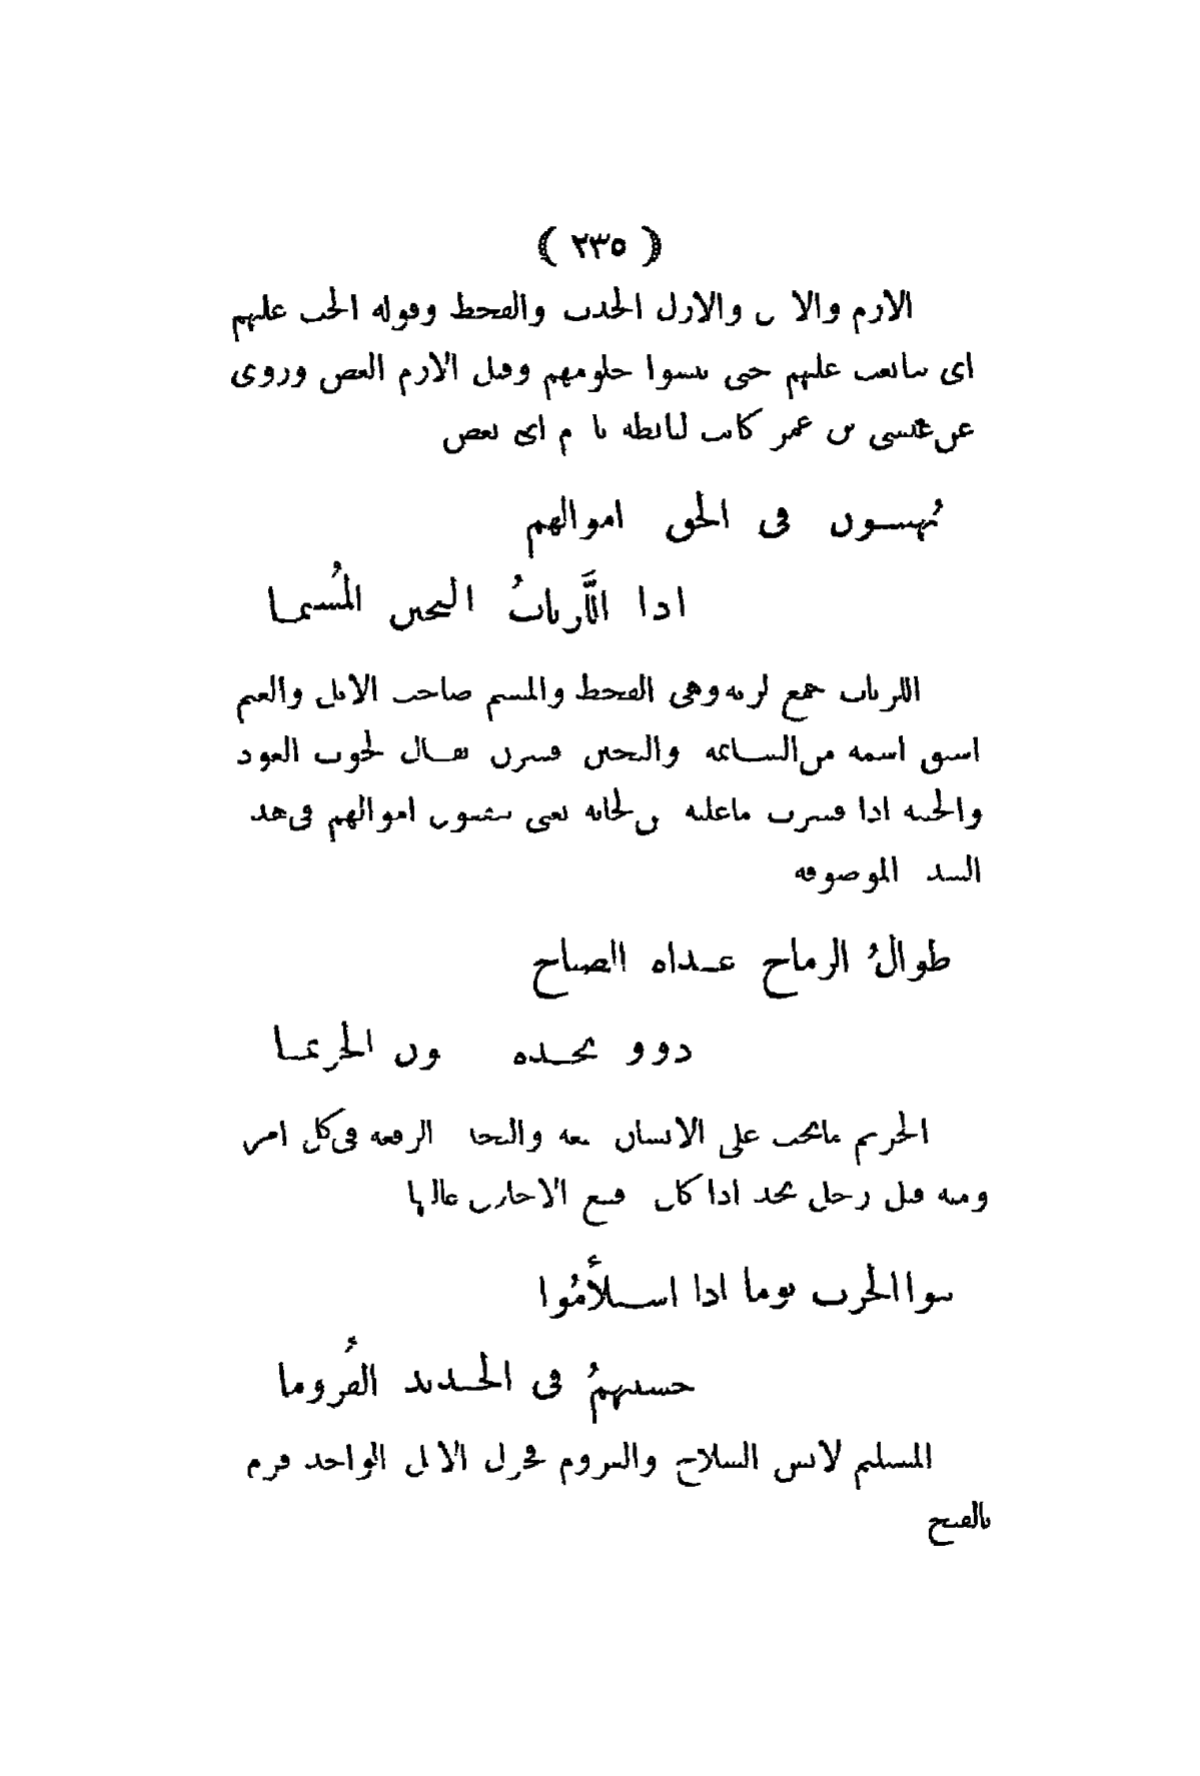 ( ٢٣٥ )
الازم والا والازل الجدب والقحط وقوله الحب عليهم
اى تتابعت عليهم حتى نسوا حلومهم وقيل الازم العض وروى
عن عيسى بن عمر كانت لنا بطة تأ م اى تعض
يُهينون فى الحق اموالهم
اذا اللَّزباتُ التحين المُسيما
اللزبات جمع لزبة وهى القحط والمسيم صاحب الابل والغنم
اشتق اسمه من السائمة والتحين قشرن يقال لحوت العود
والحيته اذا قشرت ماعليه من لحائه يعنى اموالهم فى هذ
السنة الموصوفة
طوالُ الرماح غداة الصباح
ذوو نجدة ون الحريما
الحريم مايجب على الانسان منعه والنجد الرفعة فى كل امر
ومنه قيل رجل نجد اذا كان فيع الاخلاق عاليها
بنوا الحرب يوما اذا استلأمُوا
حسبتهمُ فى الحديد القُروما
المستلئم لابس السلاح والقروم فحول الابل الواحد قرم
بالفتح